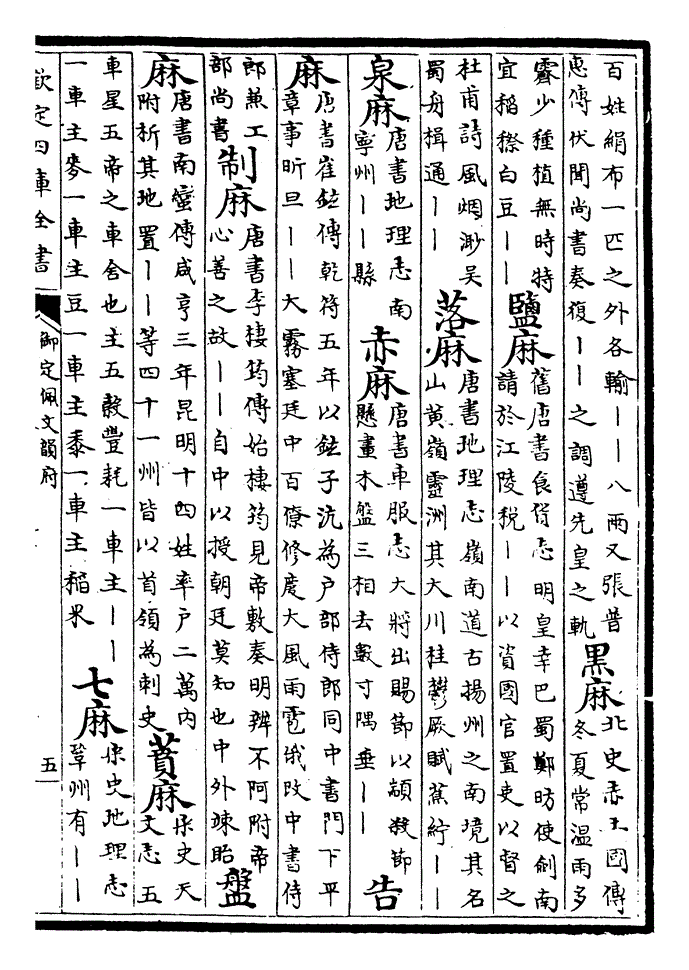 百姓絹布一匹之外各輸丨丨八兩又張普
惠傳伏聞尚書奏復丨丨之調遵先皇之軌
黒麻
北史赤土國傳
冬夏常温雨多
霽少種植無時特
宜稻穄白豆丨丨
鹽麻
舊唐書食貨志明皇幸巴蜀鄭昉使劍南
請於江陵税丨丨以資國官置吏以督之
杜甫詩風烟渺吳
蜀舟楫通丨丨
落麻
唐書地理志嶺南道古揚州之南境其名
山黄嶺靈洲其大川桂鬱厥賦蕉紵丨丨
泉麻
唐書地理志南
寧州丨丨縣
赤麻
唐書車服志大將出賜節以顓殺節
懸畫木盤三相去數寸隅垂丨丨
告
麻
唐書崔鉉傳乾符五年以鉉子沆為户部侍郎同中書門下平
章事昕旦丨丨大霧塞廷中百僚修慶大風雨雹俄改中書侍
郎兼工
部尚書
制麻
唐書李棲筠傳始棲筠見帝敷奏明辨不阿附帝
心善之故丨丨自中以授朝廷莫知也中外竦眙
盤
麻
唐書南蠻傳咸亨三年昆明十四姓率户二萬内
附析其地置丨丨等四十一州皆以首領為刺史
蕡麻
宋史天
文志五
車星五帝之車舍也主五穀豐耗一車主丨丨
一車主麥一車主豆一車主黍一車主稲米
七麻
宋史地理志
覃州有丨丨
欽定四庫全書
御定佩文韻府
五